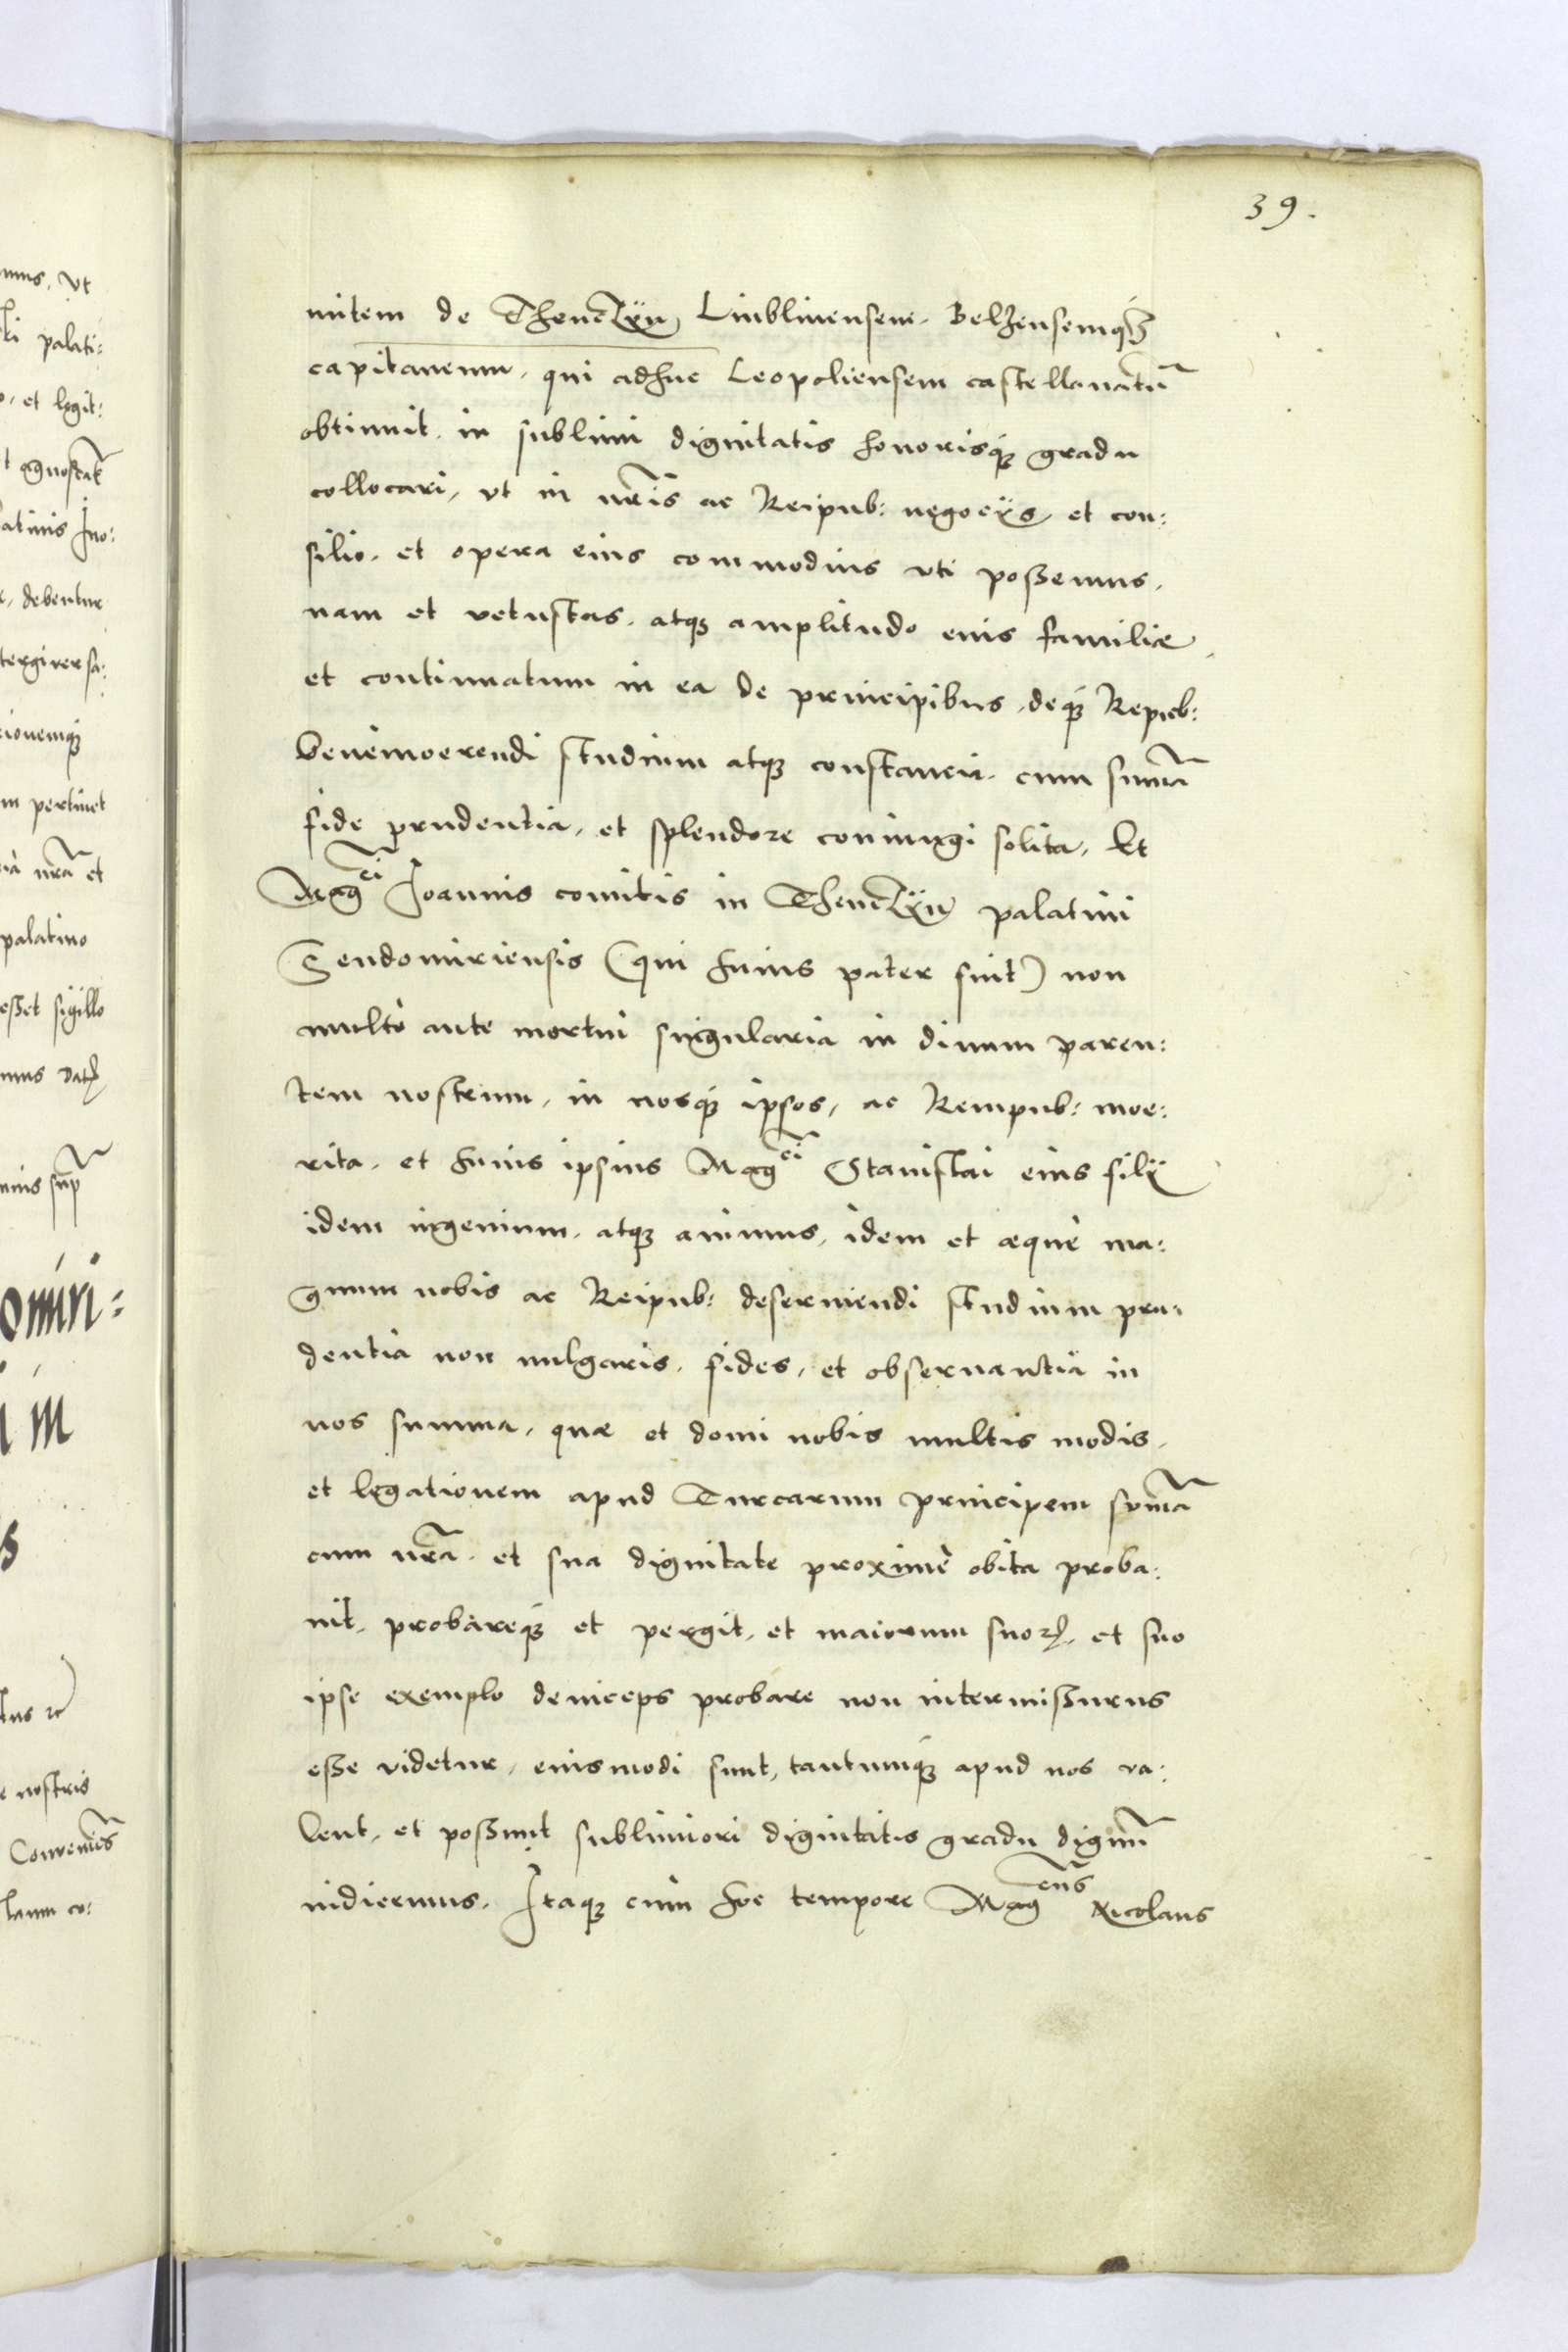 39.
mitem de Thenczyn Liublinensem. Belzensemq́ꝫ
capitaneum, qui adhuc Leopoliensem castellanatū
obtinuit. in sublimi dignitatis honorisq́ꝫ gradu
collocari, vt in nr̃is ac Reipub: negocÿs, et con:
silio. et opera eius commodius vti possemus.
nam et vetustas. atqꝫ amplitudo eius familiæ,
et continuatum in ea de principibus, deq́ꝫ Repub:
benèmoerendi studium atqꝫ constancia. cum sum̃a
fide prudentia, et splendore coniungi solita, Et
Mag̃ci Joannis comitis in Thenczÿn palatini
Sendomiriensis (qui huius pater fuit) non
multò ante mortui singularia in diuum paren:
tem nostrum, in nosq́ꝫ ipsos, ac Rempub: moe:
rita, et huius ipsius Mag̃ci Stanislai eius filÿ
idem ingenium, atqꝫ animus, idem et æquè ma:
gnum nobis ac Reipub: deseruiendi studium pru:
dentia non uulgaris, fides, et obseruantia in
nos summa, quæ et domi nobis multis modis,
et legationem apud Turcarum principem sum̃a
cum nr̃a. et sua dignitate proximè obita proba:
uit, probareq́ꝫ et pergit, et maiorum suorꝫ, et suo
ipse exemplo deinceps probare non intermissurus
esse videtur, eiusmodi sunt, tantumq́ꝫ apud nos va:
lent, et possunt sublimiori dignitatis gradu dignū
iudicemus. Itaqꝫ cum hoc tempore Mag̃cus Nicolaus
mus, vt
palati:
, et legit:
Ino:
, debentur
tergiversa:
cionemq́ꝫ
m pertinet
nr̃a et
palatino
esset sigillo
omiri:
m
nostris